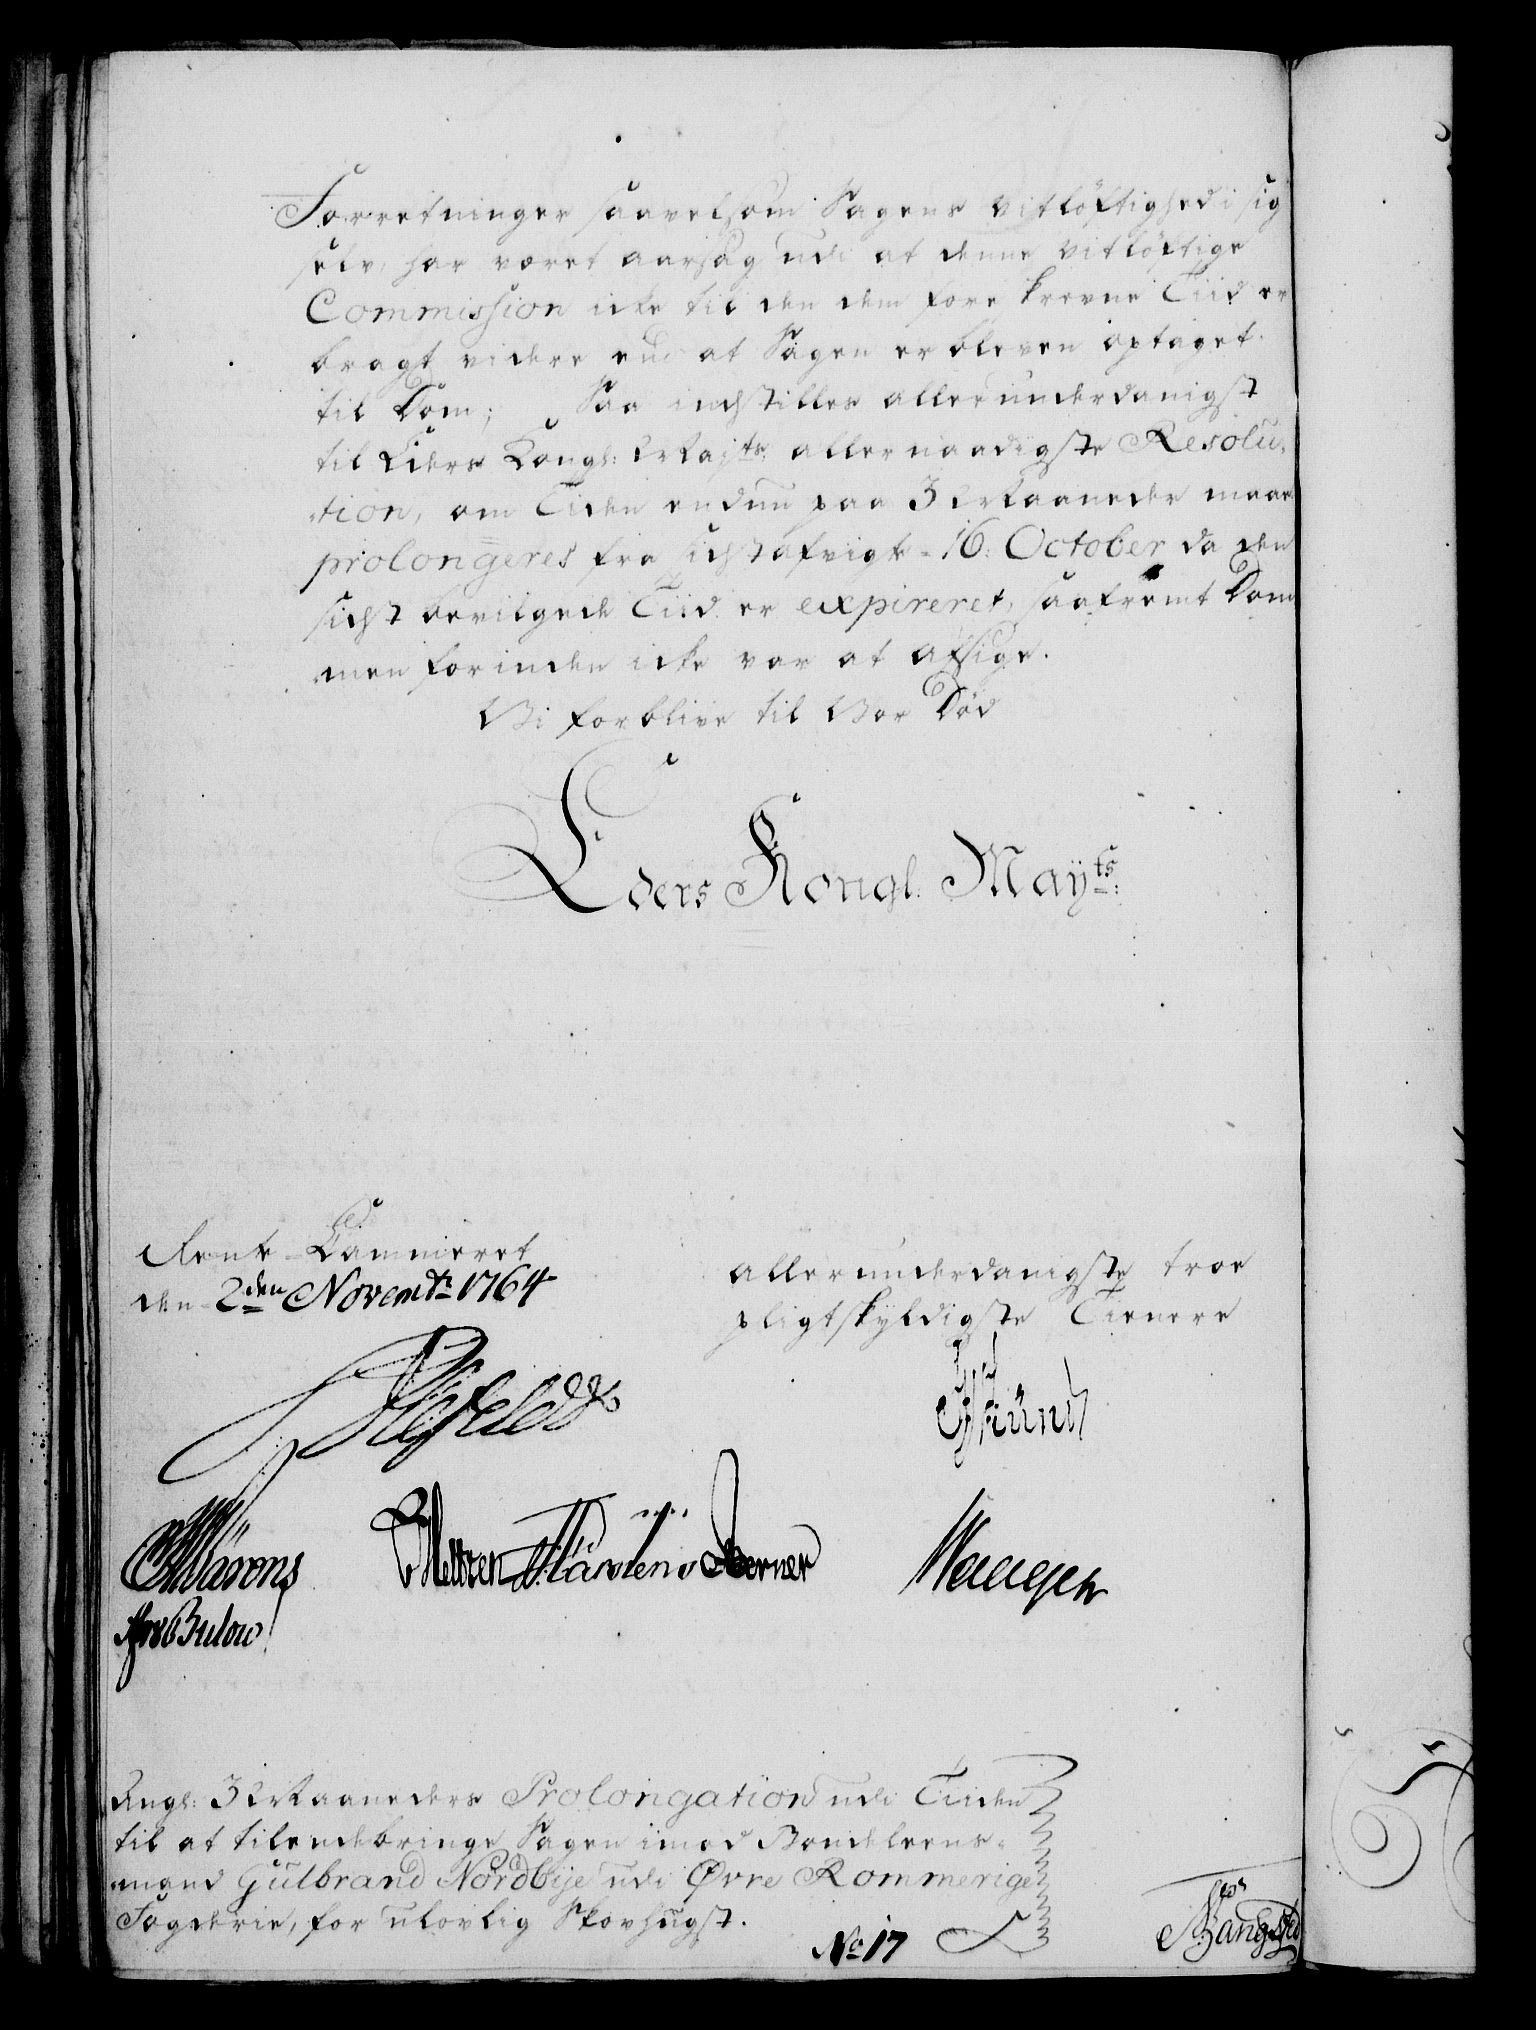 Forretninger saavelsom Sagens Vitløftighed i sig
selv, har været aarsag udi at denne vitløftige
Commission icke til den dem fore skrevne Tiid er
bragt videre end at Sagen er bleven optaget
til Dom; Saa indstilles allerunderdanigst
til Eders Kongl: Majts: allernaadigste Resolu-
-tion, om Tiden endnu paa 3 Maaneder maae
prolongeres fra sidstafvigte 16: October da den
sidst bevilgede Tiid er expireret, saafremt Dom
men forinden icke var at afsige.
Vi forblive til Vor Død
Eders Kongl. Maÿts:
Rente-Cammeret
den 2den Novembr: 1764
allerunderdanigste troe
pligtskyldigste Tienere
Meltzen Berner
Bulow
Angl: 3 Maaneders Prolongation udi Tiiden
til at tilendebringe Sagen imod Bondelens-
mand Gulbrand Nordbÿe udi Øvre Rommerige
Fogderie, for ulovlig Skovhugst.
No 17